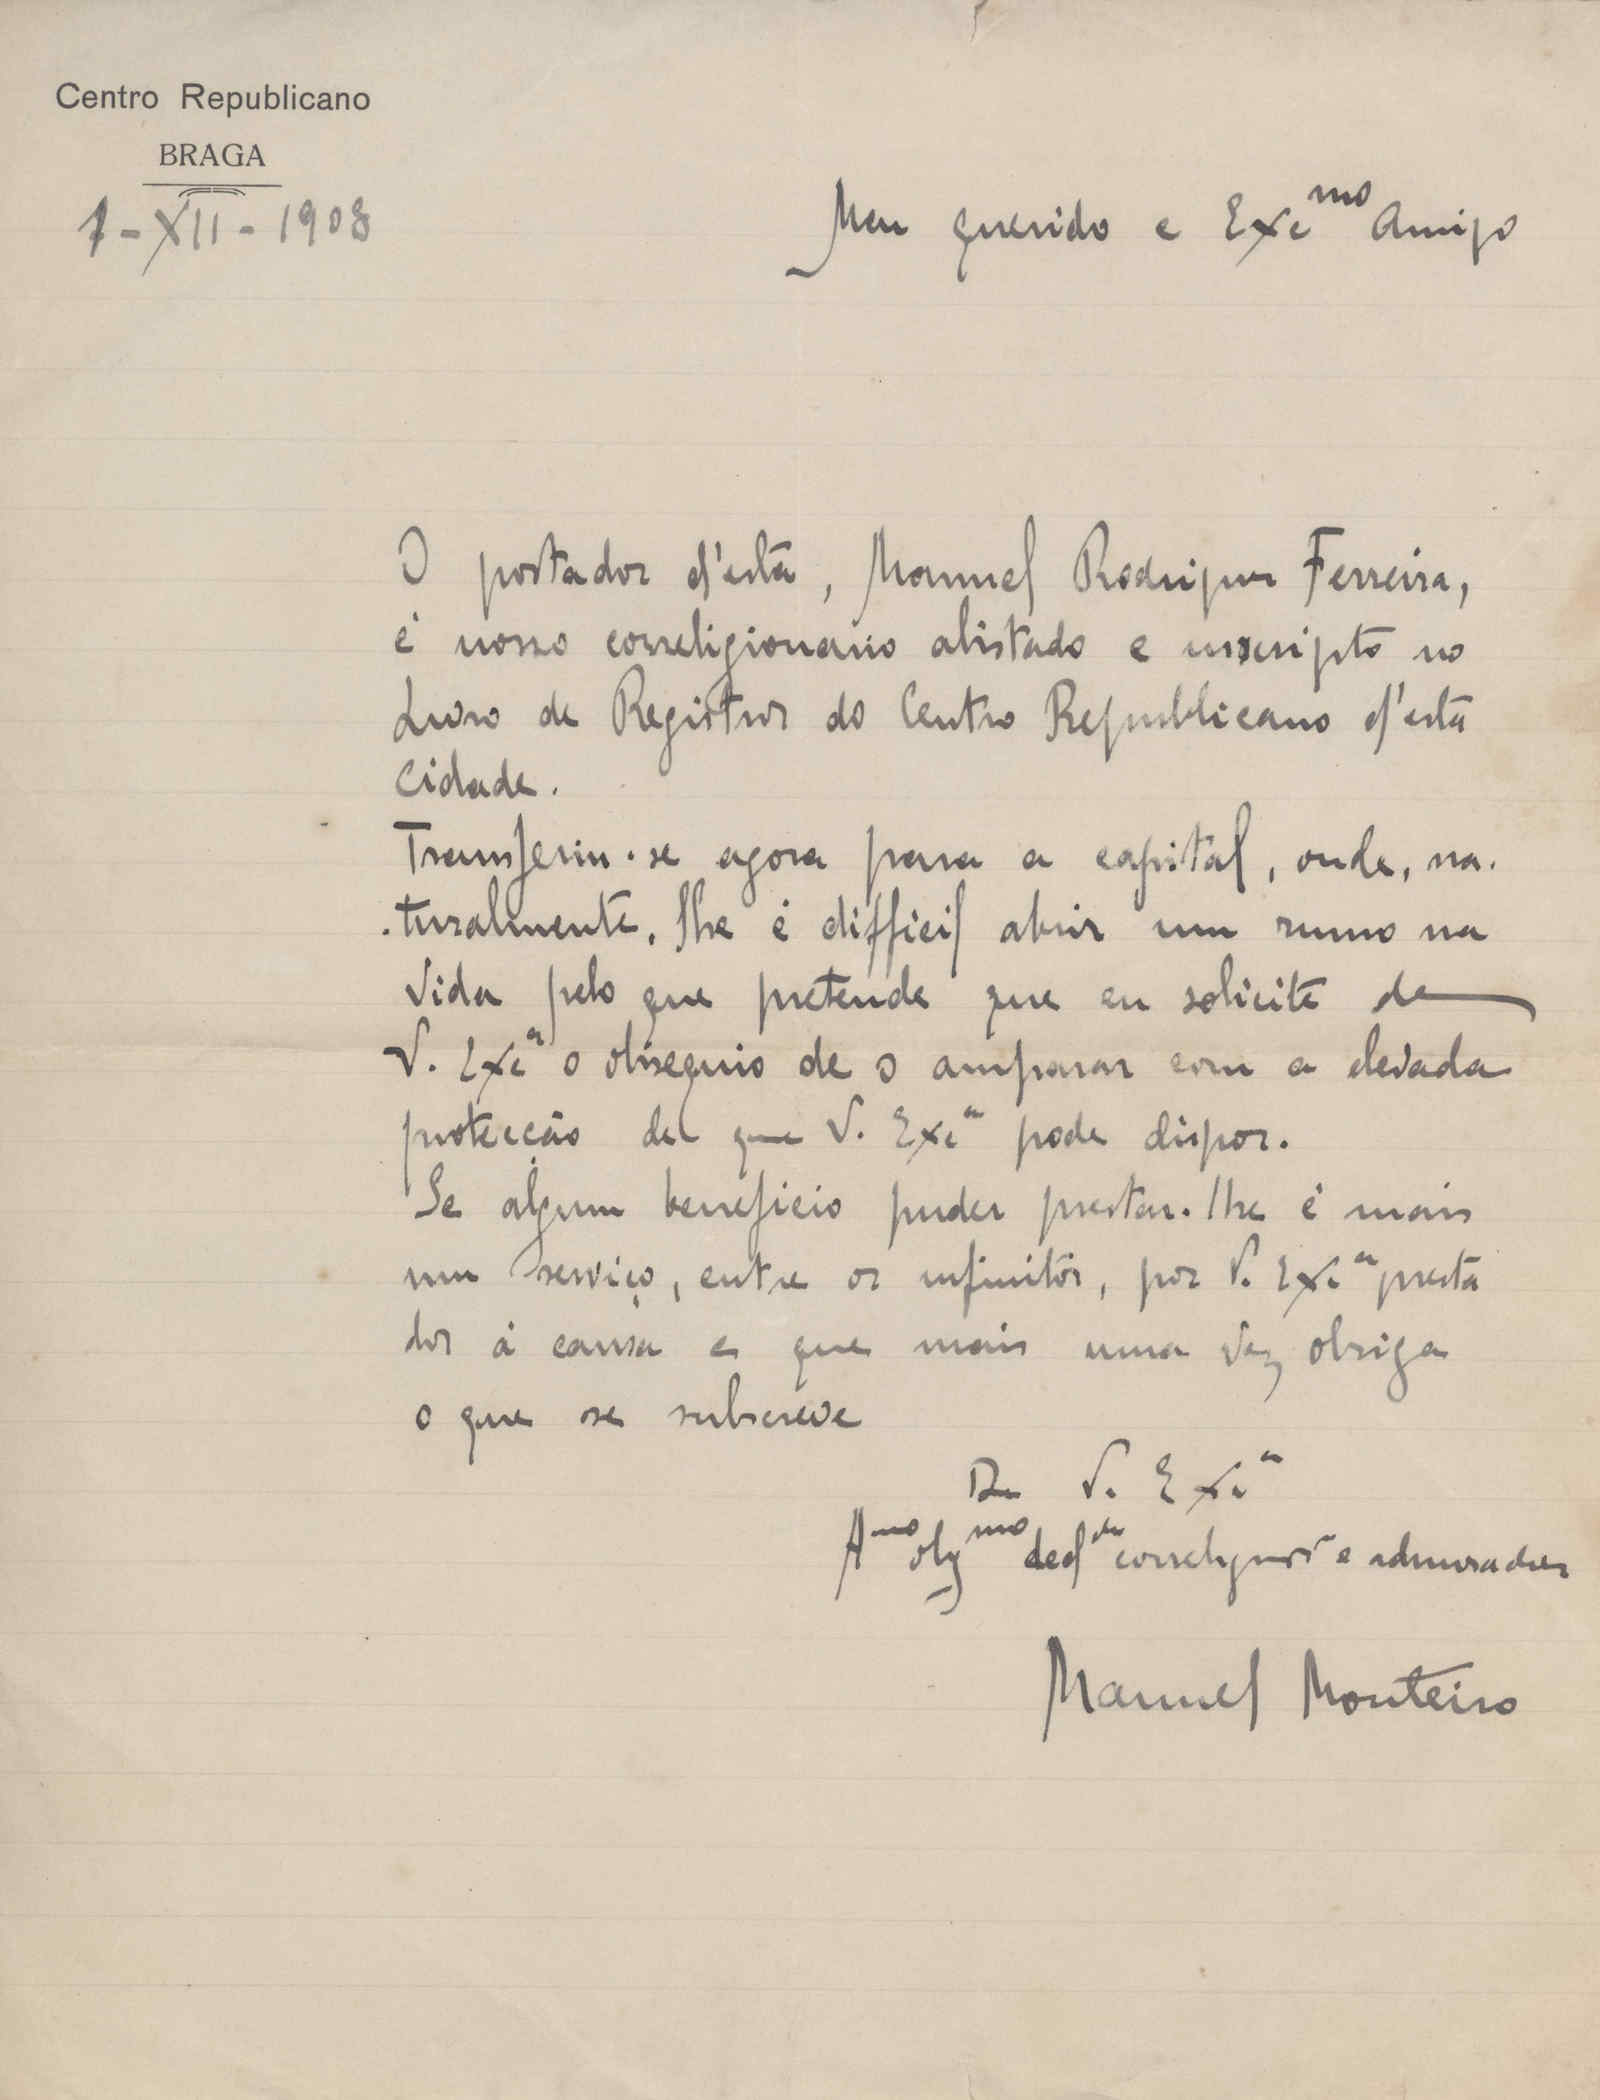 Centro Republicano
BRAGA
1-XII-1908
Meu querido e Exc.mo Amigo
O portador d'esta, Manuel Rodrigues Ferreira,
é nosso correligionario alistado e inscripto no
Livro de Registros do Centro Republicano d'esta
Cidade.
Transferiu-se agora para a capital, onde, na-
-turalmente, lhe é difficil abrir um rumo na
vida pelo que pretende que eu solicite de
V. Exc.a o obsequio de o amparar com a elevada
protecção de que V. Exc.a pode dispor.
Se algum beneficio puder prestar-lhe é mais
um serviço, entre os infinitos, por V. Exc.a presta
dos á causa e que mais uma vez obriga
o que se subscreve
De V. Exc.a
A.mo obg.mo correlig.rio e admirador
Manuel Monteiro